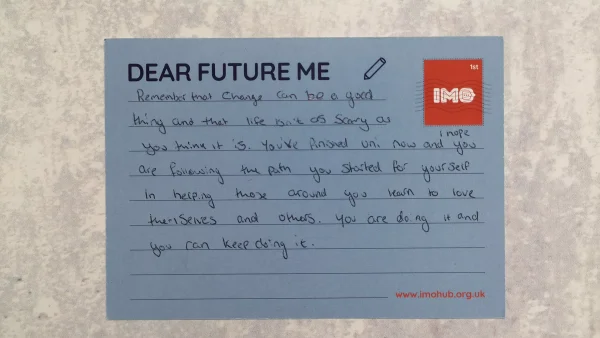 DEAR FUTURE ME
1st
IMO
Remember that change can be a good
thing and that life isn't as scary as
you think it is. You've finished uni now and I hope you
are following the path you started for yourself
in helping those around you learn to love
themselves and others. You are doing it and
you can keep doing it.
www.imohub.org.uk